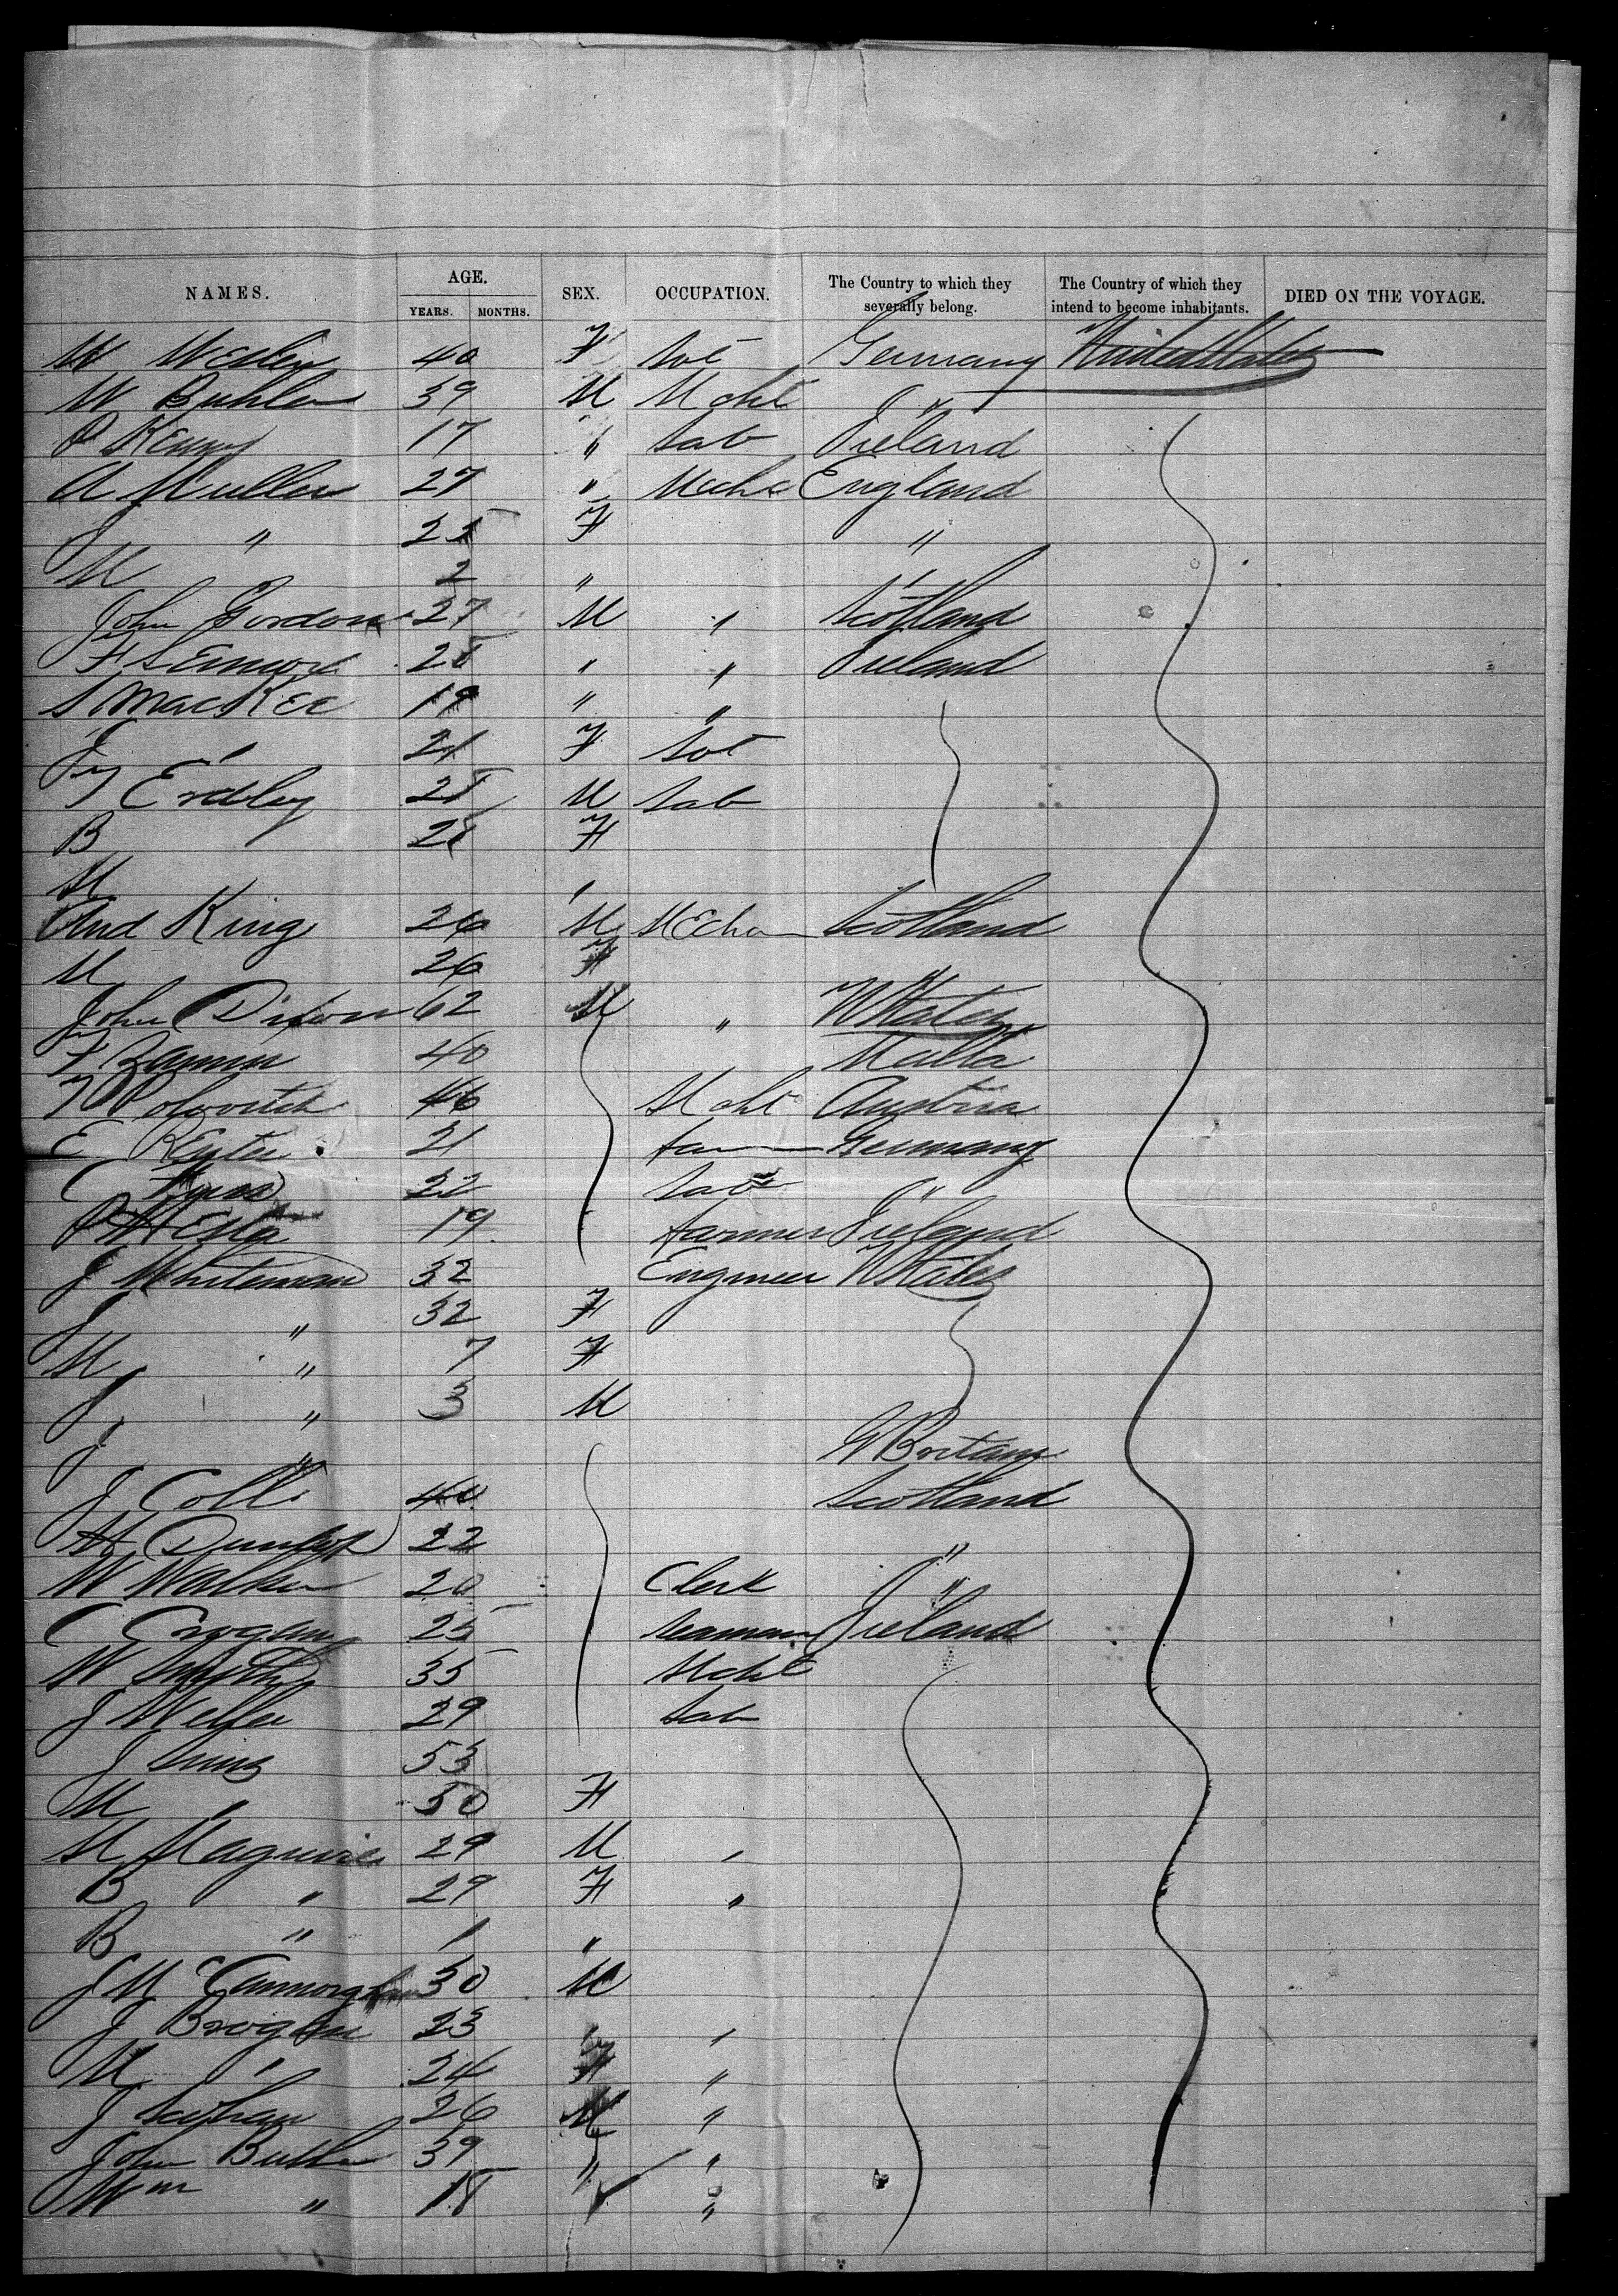 NAMES. AGE. YEARS. MONTHS. SEX. OCCUPATION. The Country to which they severally belong. The Country of which they intend to become inhabitants. DIED ON THE VOYAGE.
W Wesley 40 F Germany United States
W Buhler 39 M Mcht "
P Kenny 17 " Lab Ireland
A Muller 27 " Mech England
J " 25 F "
M 2 " "
John Gordon 27 M " Scotland
F 28 " " Ireland
S MacKee 19 " "
J " 21 F
Erdley 28 M Lab
B 28 F
M "
And King 26 M Mecha Scotland
M 26 F "
John Dixon 62 M " U States
F 40 Malta
46 Mcht Austria
E Reuter 21 Germany
C 22 Lab "
P 19 Farmer Ireland
J Whiteman 32 Engineer U States
J " 32 F
M " 7 F
J " 3 M
J " G Britain
J Coll 40 Scotland
H Dunlop 22 "
W Walker 20 Clerk "
C Crogan 25 Seaman Ireland
W Smyth 35 Mcht
J 29 Lab
J 53
M " 50 F
M Maguire 29 M "
B " 29 F "
B " 1 "
J Mc 30 M
J Brogan 23 " "
M " 24 F "
J 26 M "
John Butler 39 " "
Wm " 18 " "